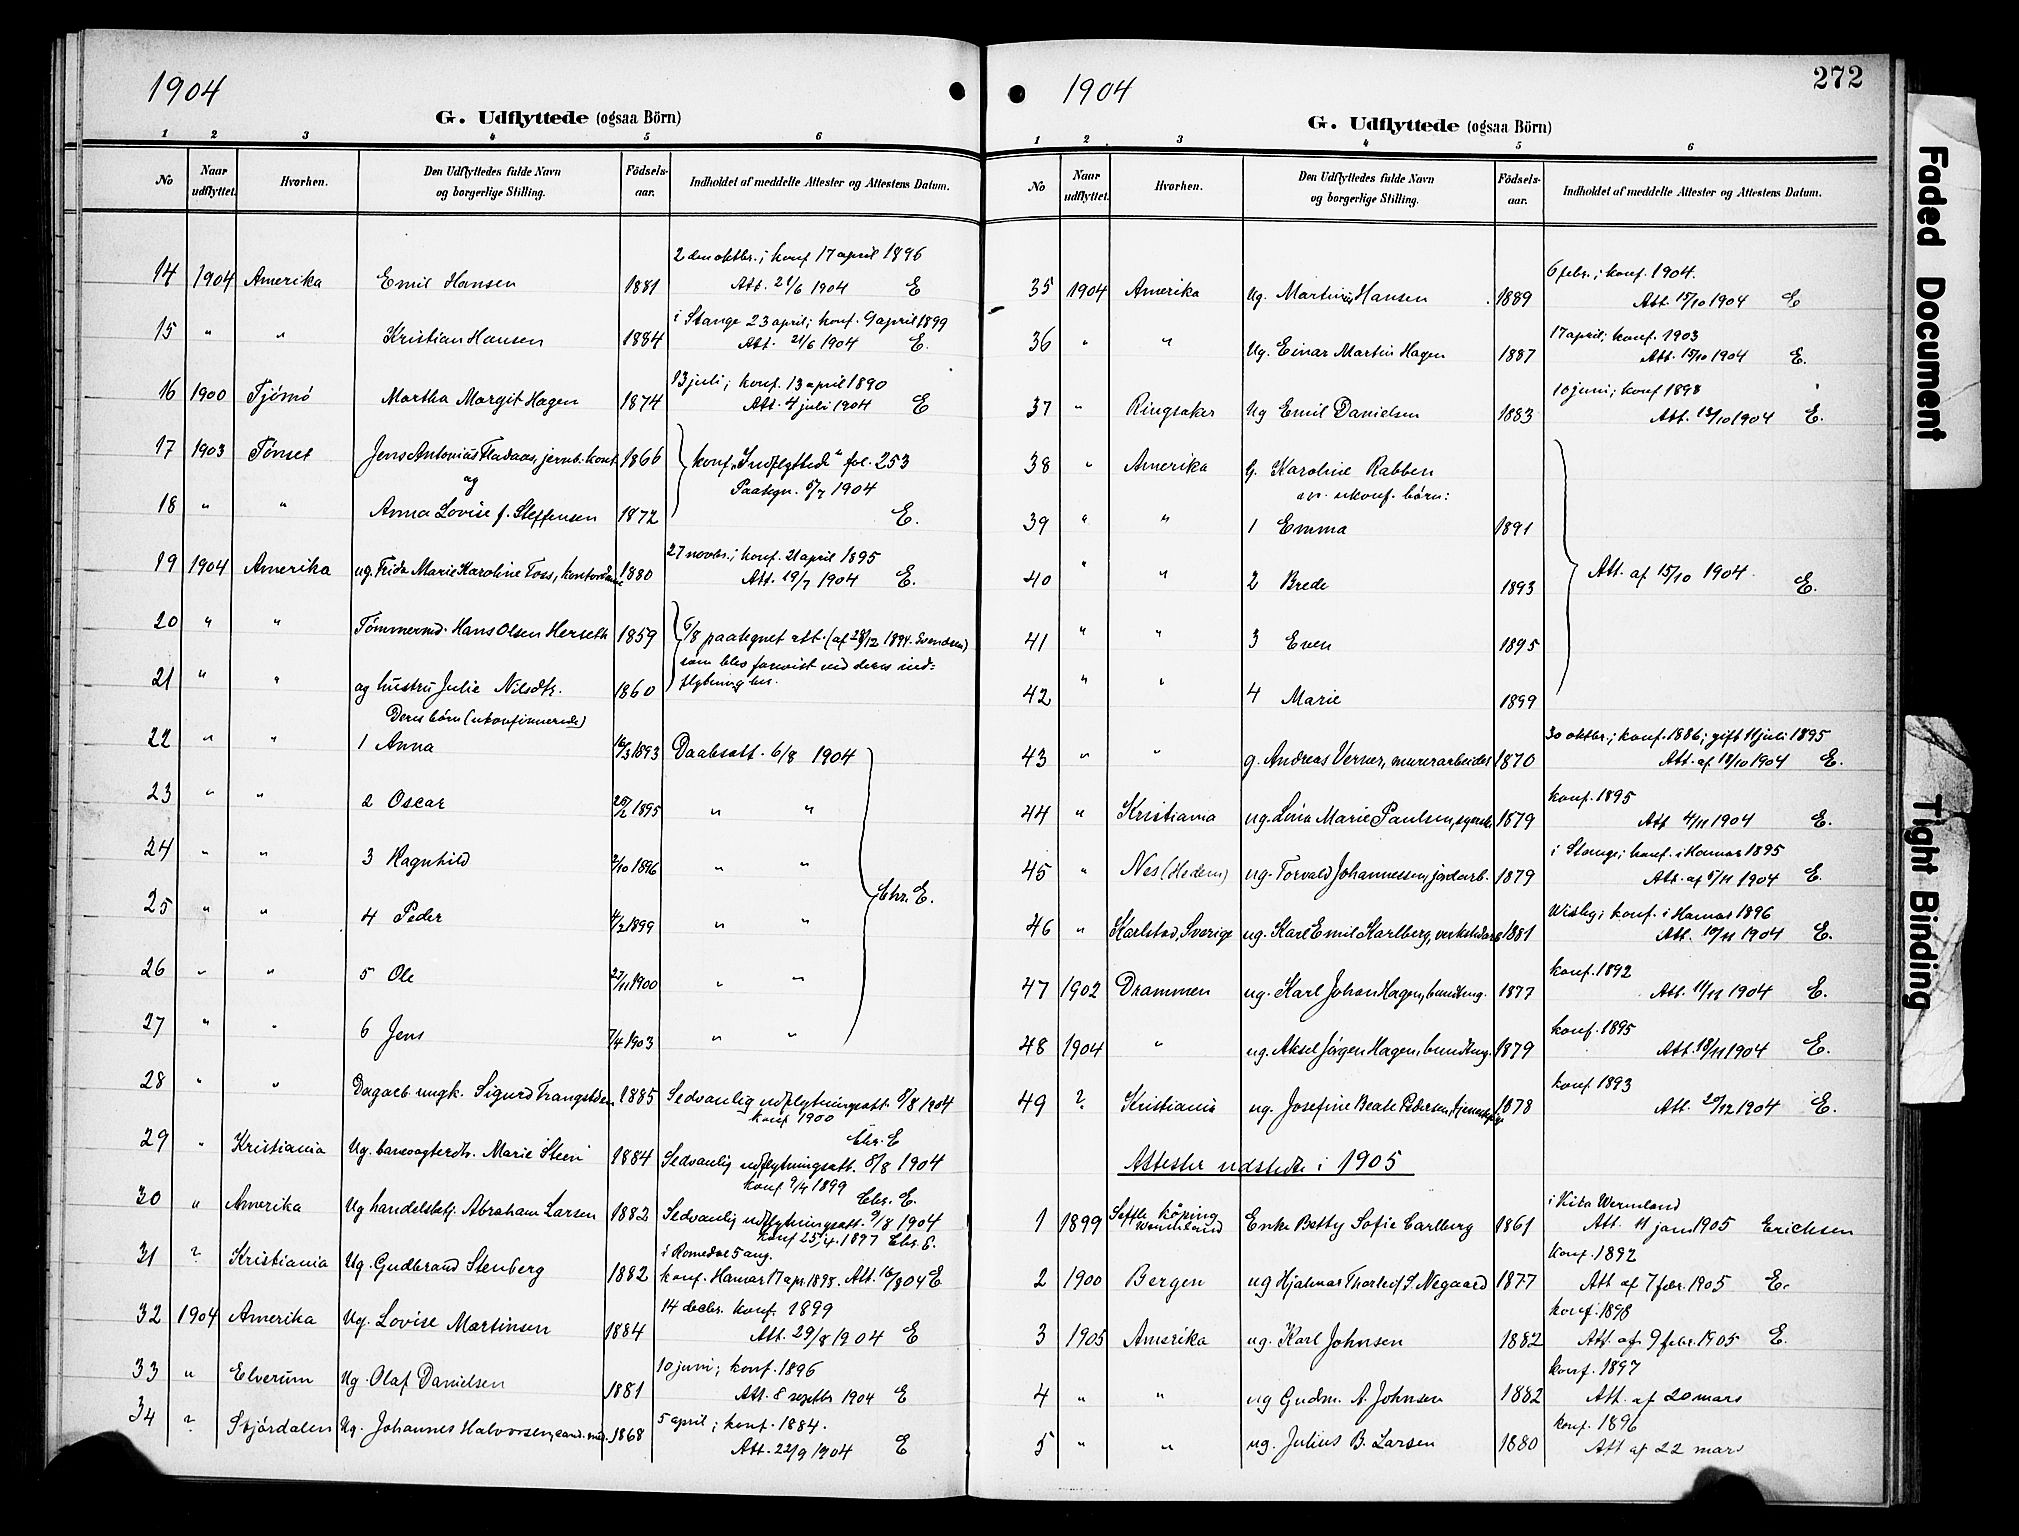 1904
G. Udflyttede (ogsaa Börn)
1 2 3 4 5 6
No Naar udflyttet. Hvorhen. Den Udflyttedes fulde Navn og borgerlige Stilling. Födsels-aar. Indholdet af meddelte Attester og Attestens Datum.
2 den oktbr.; konf 17 april 1896
14 1904 Amerika Emil Hansen 1881 Att. 21/6 1904 E
i Stange 23 april; konf. 9 april 1899
15 " " Kristian Hansen 1884 Att. 21/6 1904 E.
13 juli; konf. 13 april 1890
16 1900 Tjømø Martha Margit Hagen 1874 Att. 4 juli 1904 E
17 1903 Tønset Jens Antonius Fladaas, jernb. kont. 1866 konf. "Indflyttede" fol. 253
og Paategn. 6/7 1904
18 " " Anna Lovise f. Steffensen 1872 E.
27 novbr.; konf. 21 april 1895
19 1904 Amerika ug. Frida Marie Karoline Foss, kontordame 1880 Att. 19/7 1904 E.
20 " " Tømmermd. Hans Olsen Herseth 1859 6/8 paategnet att. (af 28/12 1894. Svendsen)
som blev forevist ved deres ind=
21 " " og hustru Julie Nilsdtr. 1860 flytning her.
Deres børn (ukonfirmerede)
22 " " 1 Anna 16/3 1893 Daabsatt. 6/8 1904
23 " " 2 Oscar 25/2 1895 " "
24 " " 3 Ragnhild 2/10 1896 " "
Chr. E.
25 " " 4 Peder 4/2 1899 " "
26 " " 5 Ole 27/11 1900 " "
27 " " 6 Jens 7/4 1903 " "
28 " " Dagarb. ungk. Sigurd Frangstuen 1885 Sedvanlig udflytningsatt. 8/8 1904
konf 1900 Chr. E
29 " Kristiania Ug. banevogterdtr. Marie Steen 1884 Sedvanlig udflytningsatt. 8/8 1904
konf 9/4 1899 Chr. E.
30 " Amerika Ug handelsbetj. Abraham Larsen 1882 Sedvanlig udflytningsatt. 9/8 1904
konf 25/4. 1897 Chr. E.
i Romedal 5 aug.
31 ? Kristiania Ug. Gudbrand Stenberg 1882 konf. Hamar 17 apr. 1898. Att. 16/8 04 E
14 decbr. konf. 1899
32 1904 Amerika Ug. Lovise Martinsen 1884 Att. 29/8 1904 E
10 juni; konf. 1896
33 " Elverum Ug. Olaf Danielsen 1881 Att. 8 septbr 1904 E
5 april; konf. 1884.
34 ? Stjørdalen Ug. Johannes Halvorsen, cand. med. 1868 Att. 22/9 1904 E
1904
272
G. Udflyttede (ogsaa Börn)
1 2 3 4 5 6
No Naar udflyttet. Hvorhen. Den Udflyttedes fulde Navn og borgerlige Stilling. Födsels-aar. Indholdet af meddelte Attester og Attestens Datum.
6 febr.; konf. 1904.
35 1904 Amerika Ug. Martinius Hansen 1889 Att. 15/10 1904 E
17 april; konf. 1903
36 " " Ug. Einar Martin Hagen 1887 Att. 15/10 1904 E.
10 juni; konf 1898
37 " Ringsaker Ug Emil Danielsen 1883 Att. 13/10 1904 E.
38 " Amerika G. Karoline Rabben
av. ukonf. børn:
39 " " 1 Emma 1891
40 " " 2 Brede 1893 Att. af 15/10 1904. E.
41 " " 3 Even 1895
42 " " 4 Marie 1899
30 oktbr.; konf. 1886; gift 11 juli 1895
43 " " g. Andreas Verner, murerarbeider 1870 Att. af 18/10 1904 E.
konf. 1895
44 " Kristiania ug. Lina Marie Paulsen, syerske 1879 Att 4/11 1904 E.
i Stange; konf. i Hamar 1895
45 " Nes (Hedem) ug. Torvald Johannessen, jordarb. 1879 Att. af 5/11 1904 E.
konf. i Hamar 1896
46 " Karlstad, Sverige ug. Karl Emil Karlberg, verkstedarb 1881 Att. 10/11 1904 E.
konf. 1892
47 1902 Drammen ug. Karl Johan Hagen, bundtmg. 1877 Att. 11/11 1904 E.
konf. 1895
48 1904 " ug. Aksel Jørgen Hagen, bundtmg. 1879 Att. 18/11 1904 E.
konf 1893
49 ? Kristiania ug. Josefine Beate Pedersen, tjenestepige 1878 Att. 20/12 1904 E.
Attester udstedte i 1905
i Kila Wermland
1 1899 Seffle köping Wermland Enke Betty Sofie Carlberg 1861 Att. 11 jan 1905 Erichsen
konf. 1892
2 1900 Bergen ug Hjalmar Thorleif S. Négaard 1877 Att af 7 febr. 1905 E.
konf. 1898
3 1905 Amerika ug. Karl Johnsen 1882 Att. af 9 febr. 1905 E.
konf. 1897
4 " " ug Gudm. A. Johnsen 1882 Att. af 20 mars
konf. 1896
5 " " ug. Julius B. Larsen 1880 Att af 22 mars
Faded Document
Tight Binding